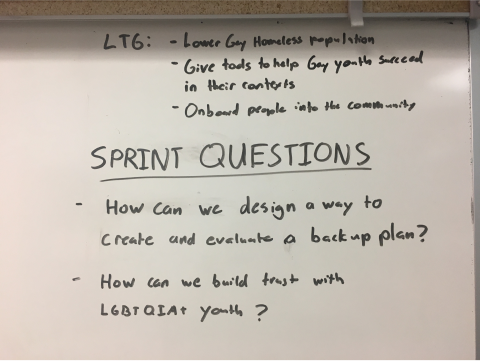 LTG: - Lower Gay Homeless population
- Give tools to help Gay youth succeed
in their contexts
- Onboard people into the community
SPRINT QUESTIONS
- How can we design a way to
create and evaluate a backup plan?
- How can we build trust with
LGBTQIA+ youth?